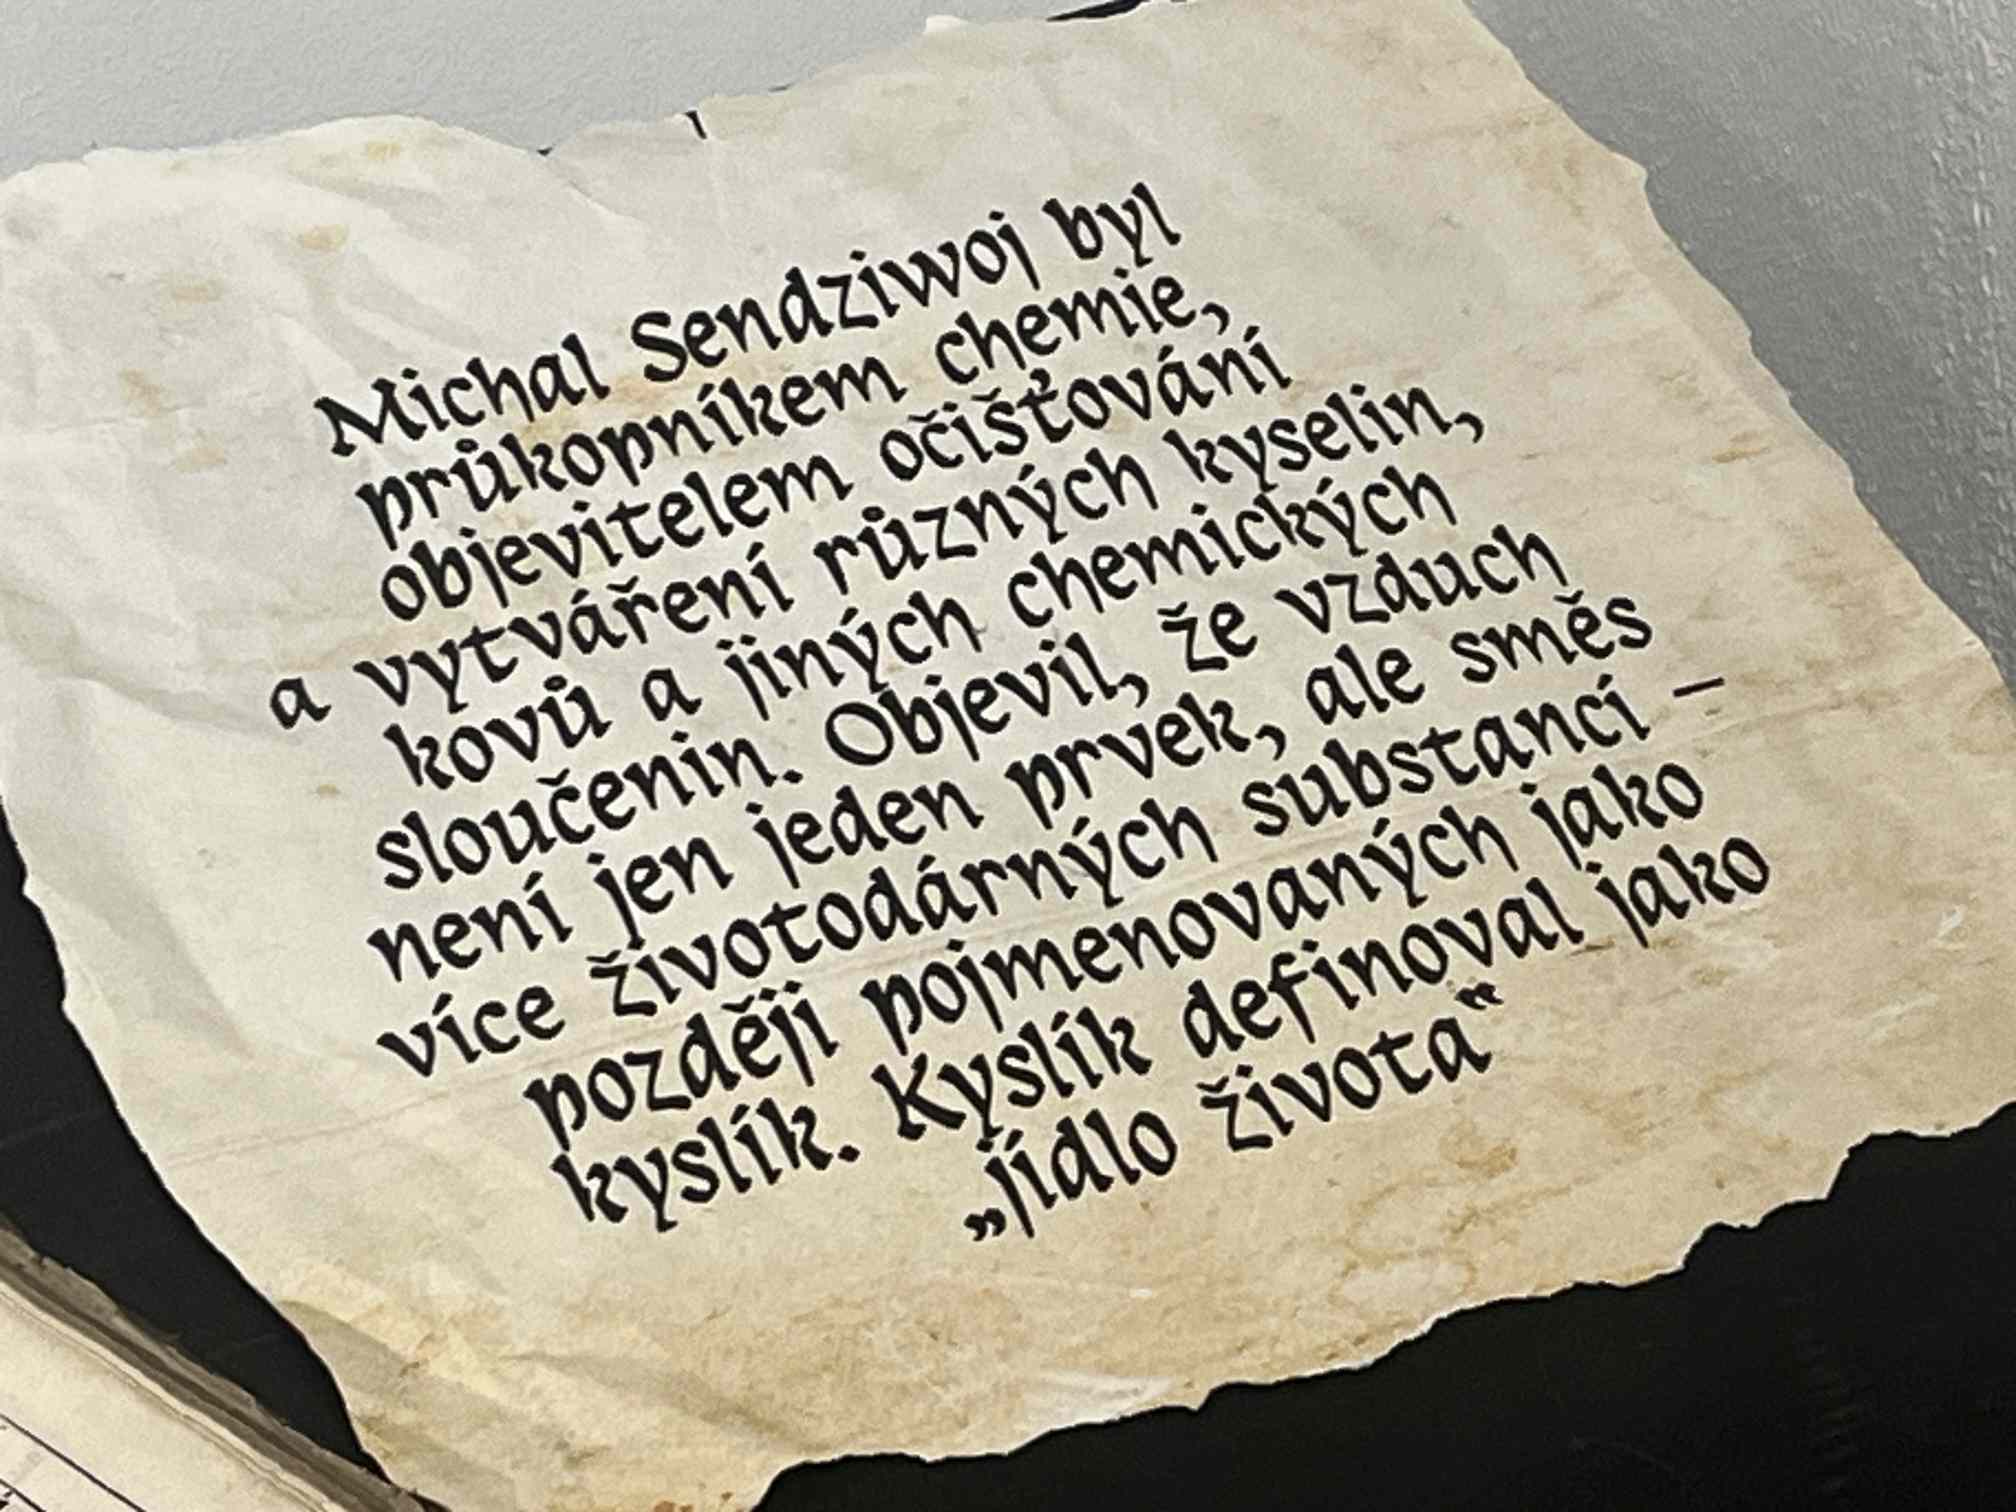 Michal Sendziwoj byl
průkopníkem chemie,
objevitelem očišťování
a vytváření různých kyselin,
kovů a jiných chemických
sloučenin. Objevil, že vzduch
není jen jeden prvek, ale směs
více životodárných substancí –
později pojmenovaných jako
kyslík. Kyslík definoval jako
„jídlo života“